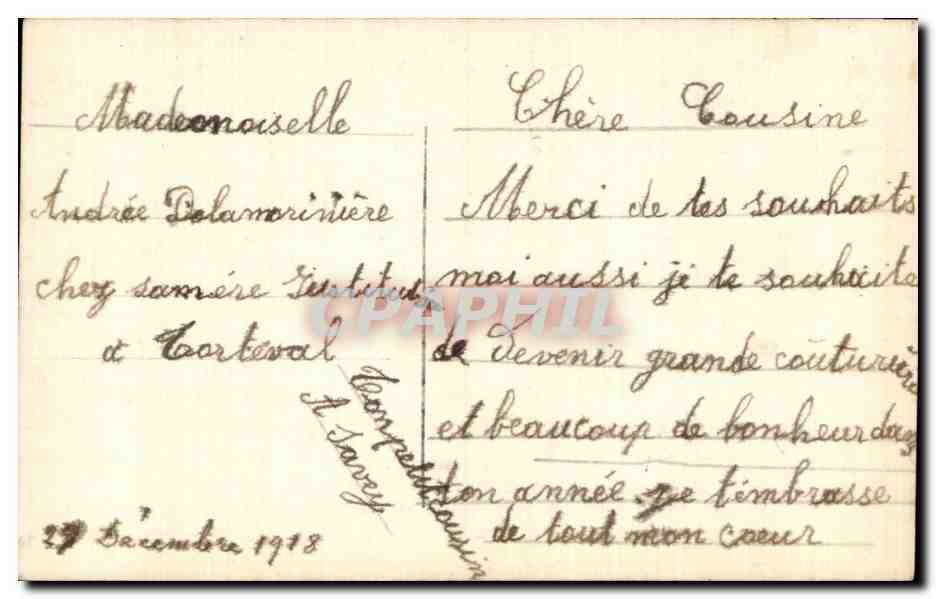 Mademoiselle
Andrée Delamorinière
chez samére Institut
à Torteval
27 Décembre 1918
Chère Cousine
Merci de tes souhaits
moi aussi je te souhaite
de Devenir grande coûturière
et beaucoup de bonheur dans
ton année. Je t'embrasse
de tout mon coeur
Tonpetitcousin
A Savey
CPAPHIL